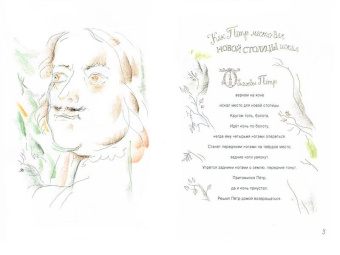 Как Петр место для
новой столицы искал
Однажды Петр
верхом на коне
искал место для новой столицы.
Кругом топь, болота.
Идет конь по болоту,
некуда ему четырьмя ногами опереться.
Станет передними ногами на твердое место,
задние ноги увязнут.
Упрется задними ногами о землю, передние тонут.
Притомился Петр,
да и конь приустал.
Решил Петр домой возвращаться.